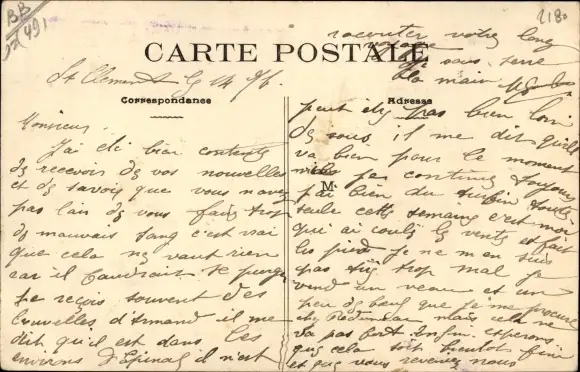 BB
491
2180
raconter votre long
voyage
je vous serre
la main
CARTE POSTALE
St Clément le 14
Correspondance
Adresse
M
Monsieur
J'ai été bien contente
de recevoir de vos nouvelles
et de savoir que vous n'avez
pas l'air de vous faire trop
de mauvais sang c'est vrai
que cela ne vaut rien
car il faudrait se purger
Je reçois souvent des
nouvelles d'Armand il me
dit qu'il est dans les
environs d'Epinal il n'est
peut être pas bien loin
de vous il me dit qu'il
va bien pour le moment
pas continue toujours
j'ai bien du turbin toute
seule cette semaine c'est moi
qui ai coulé la vente et fait
les pieds je ne m'en suis
pas tiré trop mal je
vend un veau et un
peu de bœuf que je me procure
chez mais cela ne
va pas fort enfin espérons
que cela soit bientôt fini
et que vous reveniez nous